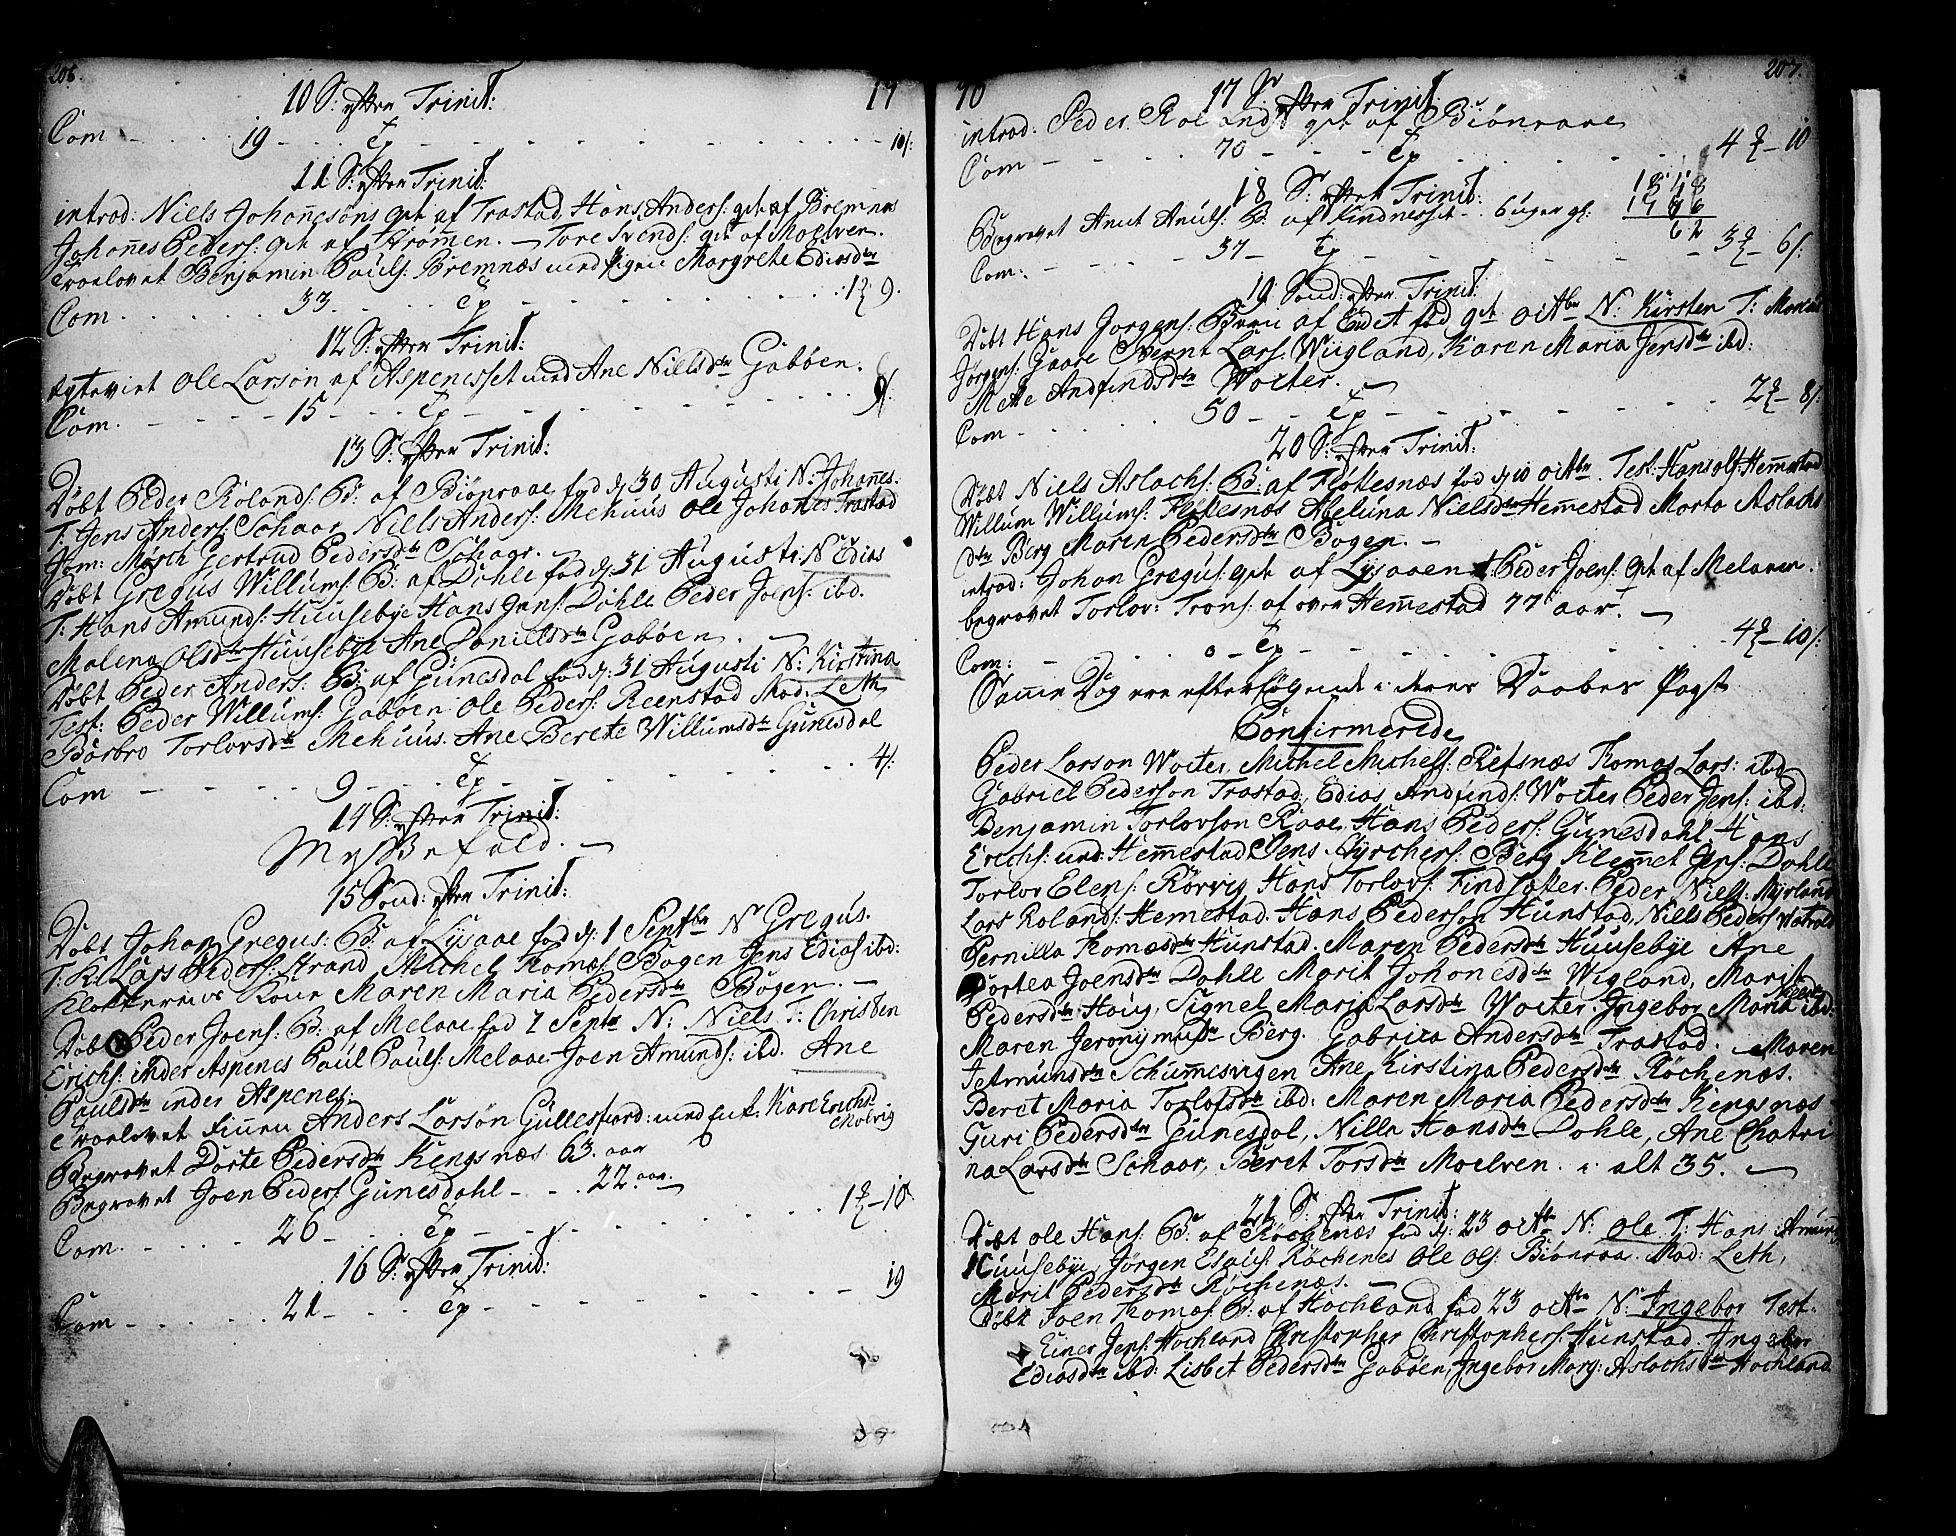 206.
17
10 S: efter Trinit:
Com - . . . 19 - . . . Ep - - - - - - - 10/:
11 S: efter Trinit:
introd: Niels Johanesøns qvt af Trastad, Hans Anders: qvt af Bremnes
Johanes Peders: qvt af Strømen. - Tore Svends: qvt af Moelven.
Troelovet Benjamin Pouls: Bremnæs med pigen Margrete Ediasdtr
Com . . . . . . 33 . . . Ep - - - - - - 1 9.
12 S: efter Trinit:
Egteviet Ole Larsøn af Aspenesset med Ane Nielsdtr Gabøen.
Com. - - - 15 - - - Ep - - - - - - 9/.
13 S: efter Trinit:
Døbt Peder Rolands: B: af Biønraae fød d: 30 Augusti N: Johanes.
T: Jens Anders: Schaar, Niels Anders: Mehuus Ole Johanes Trastad
Jom: Morsk Gertrud Pedersdtr Schaar. -
Døbt Gregus Willums: B: af Dohle fød d: 31 Augusti N: Edias
T: Hans Amunds: Huusebye Hans Jens: Dohle Peder Joens: ibd.
Malena Olsdtr Huusebye Ane Danielsdtr Gabøen. -
Døbt Peder Anders: B: af Gunesdal fød d: 31 Augusti N: Kirstina
Test: Peder Willums: Gabøen Ole Peders: Reenstad Mad: Leth
Barbro Torlovsdtr Mehuus. Ane Berete Willumsdtr Gunesdal
Com - - - . . 9 - . . . Ep - - - - - - 4/:
14 S: efter Trinit:
Messefald. -
15 Sond: efter Trinit:
Døbt Johan Gregus: B: af Lysaae fød d: 1 Septbr N: Gregus.
T: Kl: Lars Peders: Strand Michel Thomæs: Bogen Jens Edias: ibd:
Klokkerens Kone Maren Maria Pedersdtr Bogen. -
Døbt Peder Joens: B: af Melaae fød 7 Septr N: Niels T: Christen
Erichs: inder Aspenes Paul Pauls: Melaae Joen Amunds: ibd. Ane
Paulsdtr inder Aspenes.
Troelovet Finnen Anders Larsøn Gullesfiord: med Enk: Kare Erichs-
dtr Molvig
Begravet Dorte Pedersdtr Kengsnæs 63. aar
Begravet Joen Peders: Gunesdahl - . . 22. aar.
Com. . . . . . 26 - . . . Ep - - - - - - 1 - 10
16 S: efter Trinit:
Com - . . . . . 21 - . . . Ep - - - - - - 19
70
207.
17 S: efter Trinit:
introd: Peder Rolands: qvt af Biønraae
Com - - - . . . 70 - - - Ep - - - - - 4 - 10
18 S: efter Trinit:
Begravet Anut Anuls: B: af Findnesset. 6 uger gl:
Com. - - - - . 37 - Ep - - - - - - 3 - 6/:
19 Sond: efter Trinit:
Døbt Hans Jørgens: B: af Eidet fød qvt octbr N: Kirsten T: Marcus
Jørgens: Gaare Bernt Lars: Wiigland, Karen Maria Jensdtr ibd:
Mette Andfindsdtr Wolter. -
Com - . . . . 50 - - Ep - - - - - 2 - 8/:
20 S: efter Trinit:
Døbt Niels Aslachs: B: af Flokesnæs fød d: 10 octbr. Test: Hans Ols: Hemestad
Willum Willums: Flokesnæs Abeluna Nielsdtr Hemestad Marta Aslachs
dtr Berg Maren Pedersdtr Bogen. -
introd: Johan Gregus: qvt af Lysaaen. Peder Joens: qvt af Melaaen.
begravet Torlov: Trons: af over Hemestad 77 aar. -
Com: - - - . . 0 - Ep - - - - - - 4 - 10/:
Same Dag ere efterfølgende i deres Daabes Pagt
Confirmerede,
Peder Larsøn Wolter, Michel Michels: Refsnæs Thomas Lars: ibd
Gabriel Pedersøn Trastad, Edias Andfinds: Wolter Peder Jens: ibd:
Benjamin Torlovsøn Raae, Hans Peders: Gunesdahl Hans
Erichs: ned: Hemestad, Jens Byrchers: Berg Klemet Jens: Dohle
Torlov Elens: Rørvig Hans Torlovs: Findsæter. Peder Niels: Myrland
Lars Rolands: Hemestad. Hans Pedersøn Hunstad, Niels Peders:
Pernilla Thomasdtr Hunstad. Maren Pedersdtr Huusebye Ane
Dortea Joensdtr Dohle Marit Johanesdtr Wigland, Marit
Pedersdtr Houg, Signel Maria Larsdtr Wolter. Ingebor Maria ibd:
Maren Jeronymusdtr Berg. Gabriea Andersdtr Trastad. - Maren
Jetmundsdtr Schumesvigen Ane Kirstina Pedersdtr Røchenæs.
Beret Maria Torlofsdtr ibd: Maren Maria Pedersdtr Kengsnæs
Guri Pedersdtr Gunesdal, Nilla Hansdtr Dohle, Ane Chatri
na Larsdtr Schaar, Beret Torsdtr Moelven. i alt 35. -
21 S: efter Trinit:
Døbt Ole Hans: B: af Røchenæs fød d: 23 octbr N: Ole T: Hans: Amunds
Huusebye, Jørgen Esaus: Røchenes Ole Ols: Biønraa Mad: Leth,
Marit Pedersdtr Røchenæs. -
Døbt Joen Thomæs: B: af Hochland fød 23 octbr N: Ingebor Test.
Einer Jens: Hochland Christopher Christophers: Hunstad Ingebor
Ediasdtr ibd: Lisbet Pedersdtr Gabøen, Ingebor Marg: Aslachsdtr Hochland